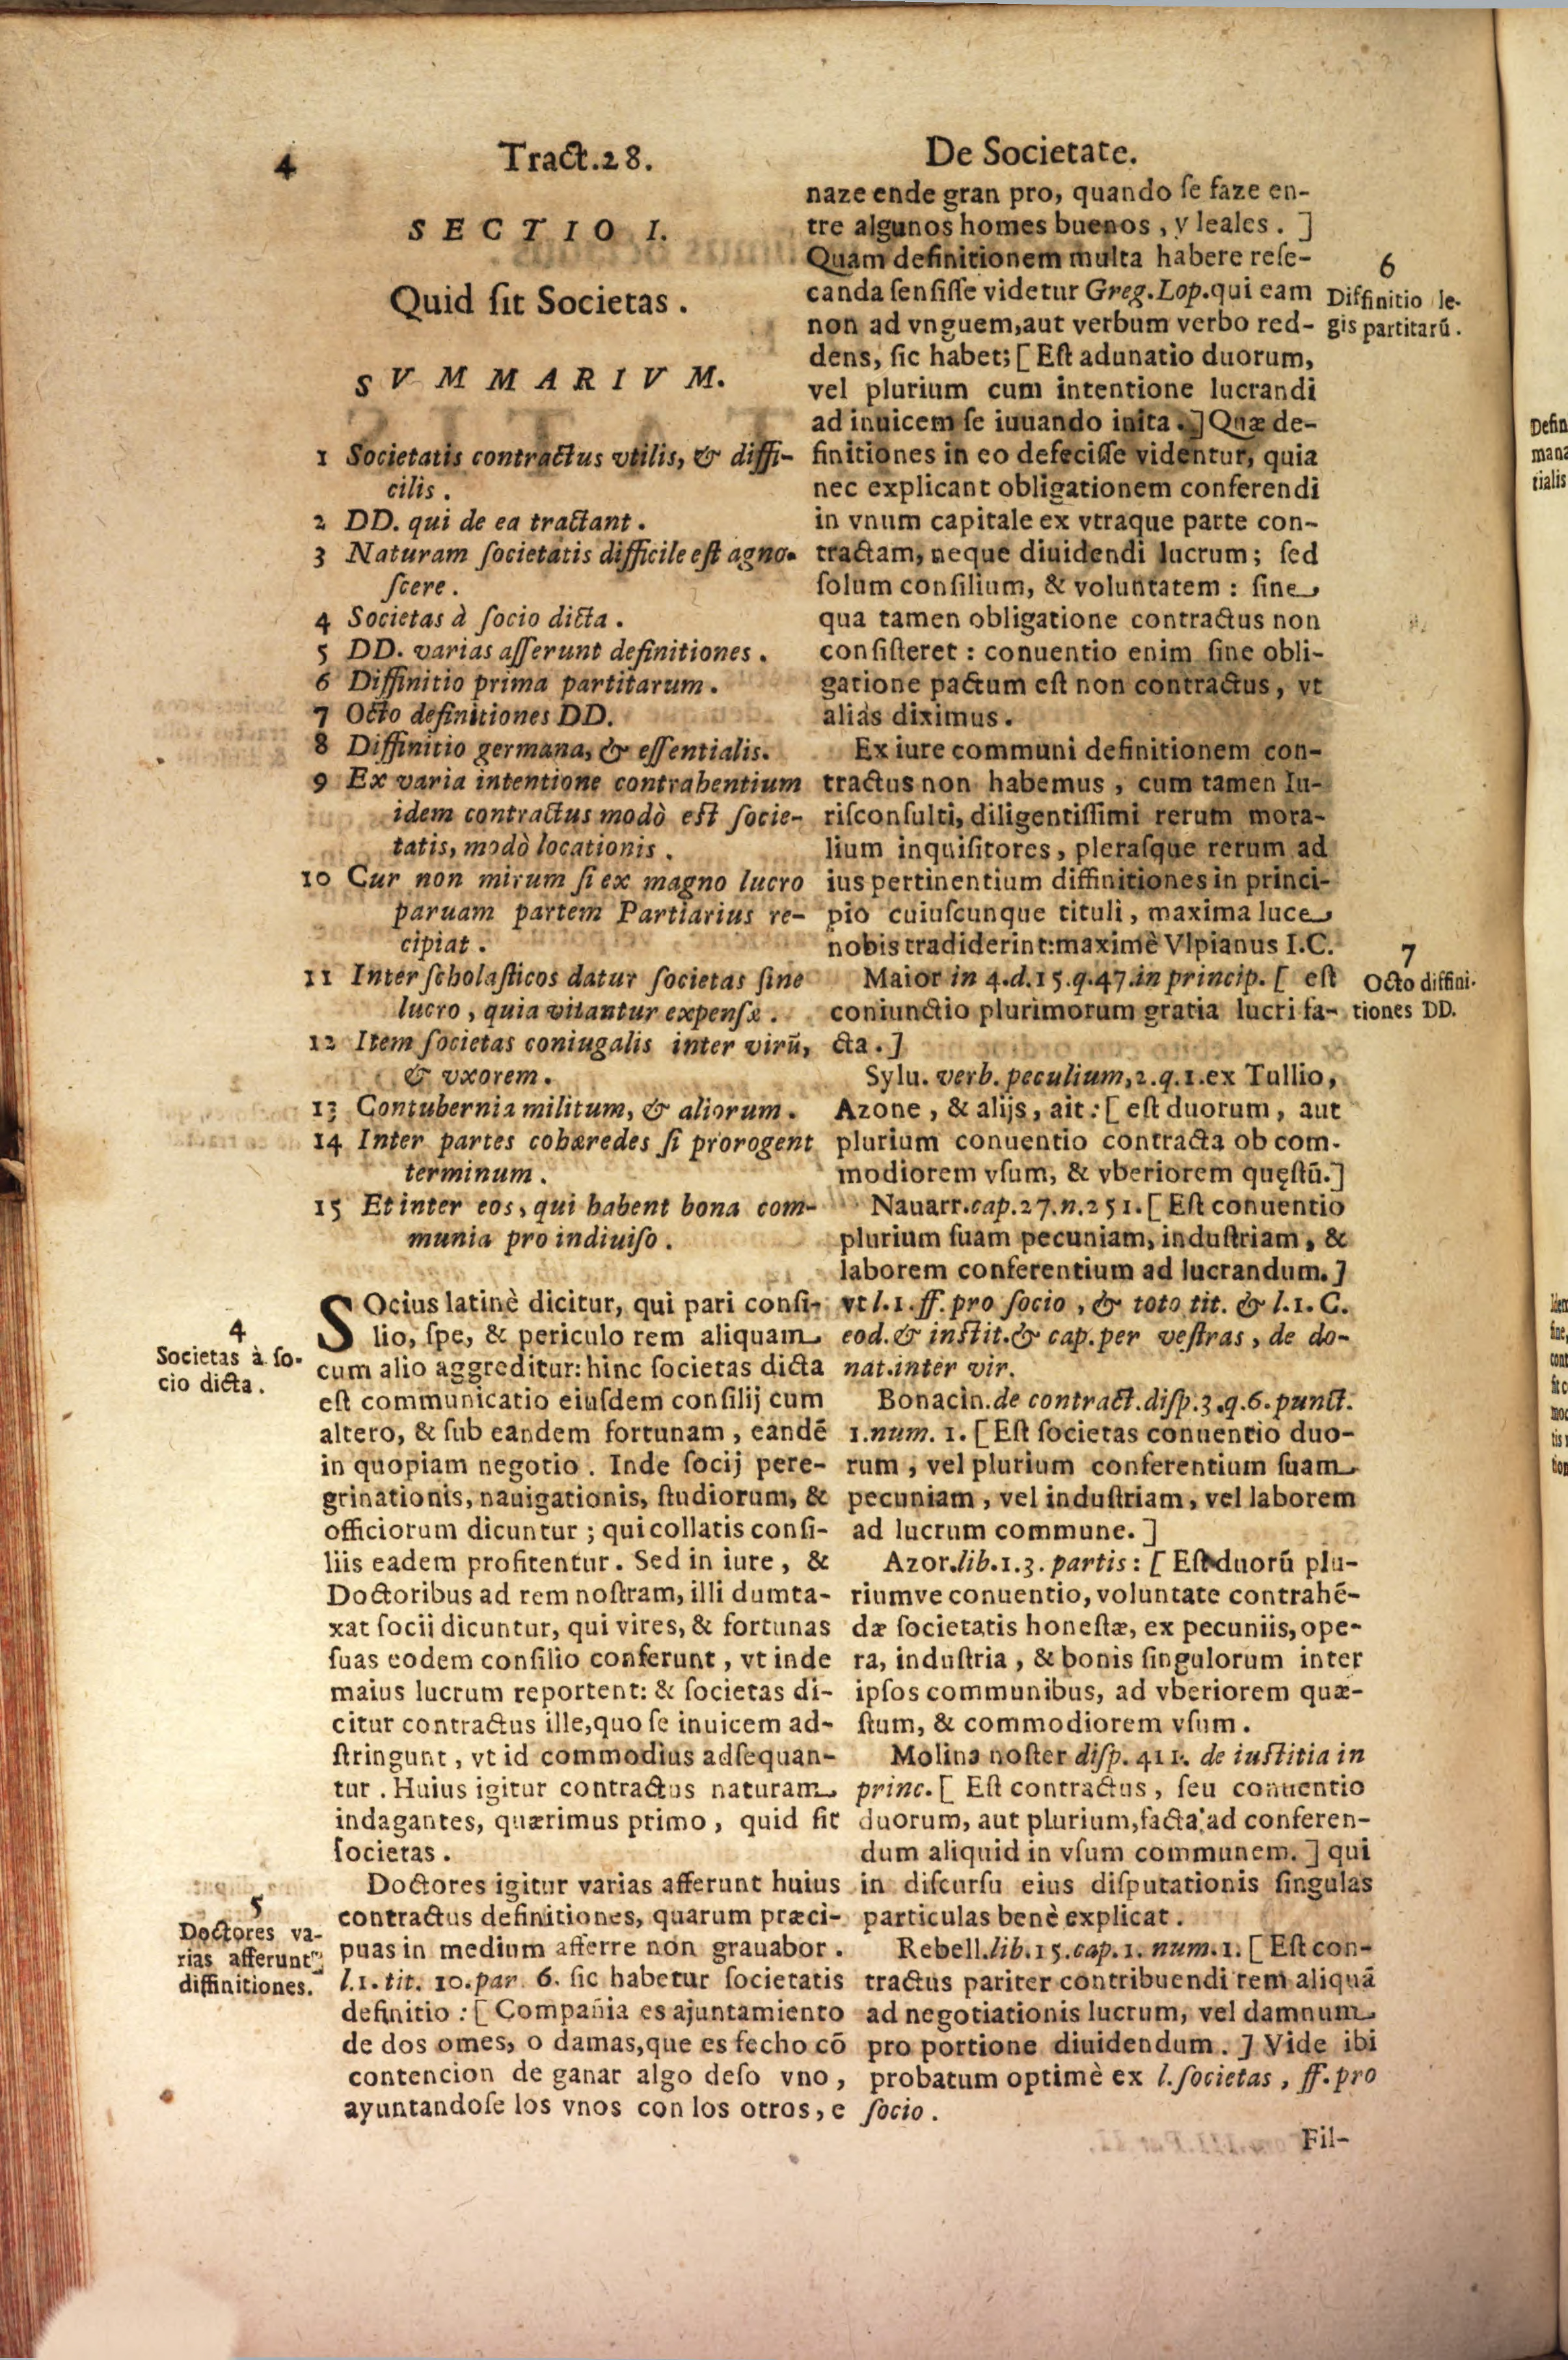 4
Tract.28.
De Societate.
SECTIO I.
Quid ſit Societas.
SVMMARIVM.
1 Societatis contractus vtilis, & diffi-
cilis.
2 DD. qui de ea tractant.
3 Naturam ſocietatis difficile eſt agno-
ſcere.
4 Societas à ſocio dicta.
5 DD. varias aſſerunt definitiones.
6 Diffinitio prima partitarum.
7 Octo definitiones DD.
8 Diffinitio germana, & eſſentialis.
9 Ex varia intentione contrahentium
idem contractus modò eſt ſocie-
tatis, modò locationis.
10 Cur non mirum ſi ex magno lucro
paruam partem Partiarius re-
cipiat.
11 Inter ſcholaſticos datur ſocietas ſine
lucro, quia vitantur expenſæ.
12 Item ſocietas coniugalis inter virū,
& vxorem.
13 Contubernia militum, & aliorum.
14 Inter partes cohæredes ſi prorogent
terminum.
15 Et inter eos, qui habent bona com-
munia pro indiuiſo.
4
Societas à ſo-
cio dicta.
SOcius latinè dicitur, qui pari conſi-
lio, ſpe, & periculo rem aliquam
cum alio aggreditur: hinc ſocietas dicta
eſt communicatio eiuſdem conſilij cum
altero, & ſub eandem fortunam, eandē
in quopiam negotio. Inde ſocij pere-
grinationis, nauigationis, ſtudiorum, &
officiorum dicuntur; qui collatis conſi-
liis eadem profitentur. Sed in iure, &
Doctoribus ad rem noſtram, illi dumta-
xat ſocii dicuntur, qui vires, & fortunas
ſuas eodem conſilio conferunt, vt inde
maius lucrum reportent: & ſocietas di-
citur contractus ille, quo ſe inuicem ad-
ſtringunt, vt id commodius adſequan-
tur. Huius igitur contractus naturam
indagantes, quærimus primo, quid ſit
ſocietas.
5
Doctores va-
rias afferunt
diffinitiones.
Doctores igitur varias afferunt huius
contractus definitiones, quarum præci-
puas in medium afferre non grauabor.
l.1. tit. 10. par. 6. ſic habetur ſocietatis
definitio: [Compañia es ajuntamiento
de dos omes, o damas, que es fecho cō
contencion de ganar algo deſo vno,
ayuntandoſe los vnos con los otros, e
naze ende gran pro, quando ſe faze en-
tre algunos homes buenos, y leales.]
Quam definitionem multa habere reſe-
canda ſenſiſſe videtur Greg. Lop. qui eam
non ad vnguem, aut verbum verbo red-
dens, ſic habet; [Eſt adunatio duorum,
vel plurium cum intentione lucrandi
ad inuicem ſe iuuando inita.] Quæ de-
finitiones in eo defeciſſe videntur, quia
nec explicant obligationem conferendi
in vnum capitale ex vtraque parte con-
tractam, neque diuidendi lucrum; ſed
ſolum conſilium, & voluntatem: ſine
qua tamen obligatione contractus non
conſiſteret: conuentio enim ſine obli-
gatione pactum eſt non contractus, vt
aliàs diximus.
6
Diffinitio le-
gis partitarū.
Ex iure communi definitionem con-
tractus non habemus, cum tamen Iu-
riſconſulti, diligentiſſimi rerum mora-
lium inquiſitores, pleraſque rerum ad
ius pertinentium diffinitiones in princi-
pio cuiuſcunque tituli, maxima luce
nobis tradiderint: maximè Vlpianus I.C.
7
Octo diffini-
tiones DD.
Maior in 4.d.15.q.47.in princip. [eſt
coniunctio plurimorum gratia lucri fa-
cta.]
Sylu. verb. peculium, 2.q.1. ex Tullio,
Azone, & alijs, ait: [eſt duorum, aut
plurium conuentio contracta ob com-
modiorem vſum, & vberiorem quęſtū.]
Nauarr. cap.27.n.251. [Eſt conuentio
plurium ſuam pecuniam, induſtriam, &
laborem conferentium ad lucrandum.]
vt l.1. ff. pro ſocio, & toto tit. & l.1. C.
eod. & inſtit. & cap. per veſtras, de do-
nat. inter vir.
Bonacin. de contract. diſp.3.q.6. punct.
1. num. 1. [Eſt ſocietas conuentio duo-
rum, vel plurium conferentium ſuam
pecuniam, vel induſtriam, vel laborem
ad lucrum commune.]
Azor. lib.1.3. partis: [Eſt duorū plu-
riumve conuentio, voluntate contrahē-
dæ ſocietatis honeſtæ, ex pecuniis, ope-
ra, induſtria, & bonis ſingulorum inter
ipſos communibus, ad vberiorem quæ-
ſtum, & commodiorem vſum.
Molina noſter diſp. 411. de iuſtitia in
princ. [Eſt contractus, ſeu conuentio
duorum, aut plurium, facta ad conferen-
dum aliquid in vſum communem.] qui
in diſcurſu eius diſputationis ſingulas
particulas benè explicat.
Rebell. lib.15. cap. 1. num. 1. [Eſt con-
tractus pariter contribuendi rem aliquā
ad negotiationis lucrum, vel damnum
pro portione diuidendum.] Vide ibi
probatum optimè ex l. ſocietas, ff. pro
ſocio.
Fil-
Defin
tialis